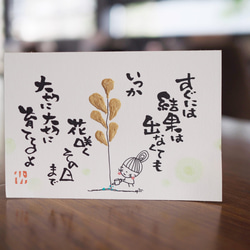 すぐには
結果は
出なくても
いつか
花咲く
その日
まで
大切に大切に
育てるよ